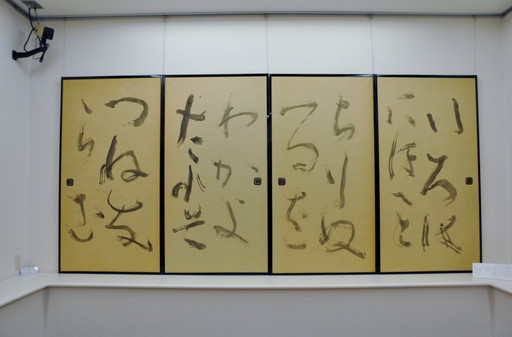 いろは
にほへと
ちりぬ
るを
わかよ
たれそ
つねな
らむ